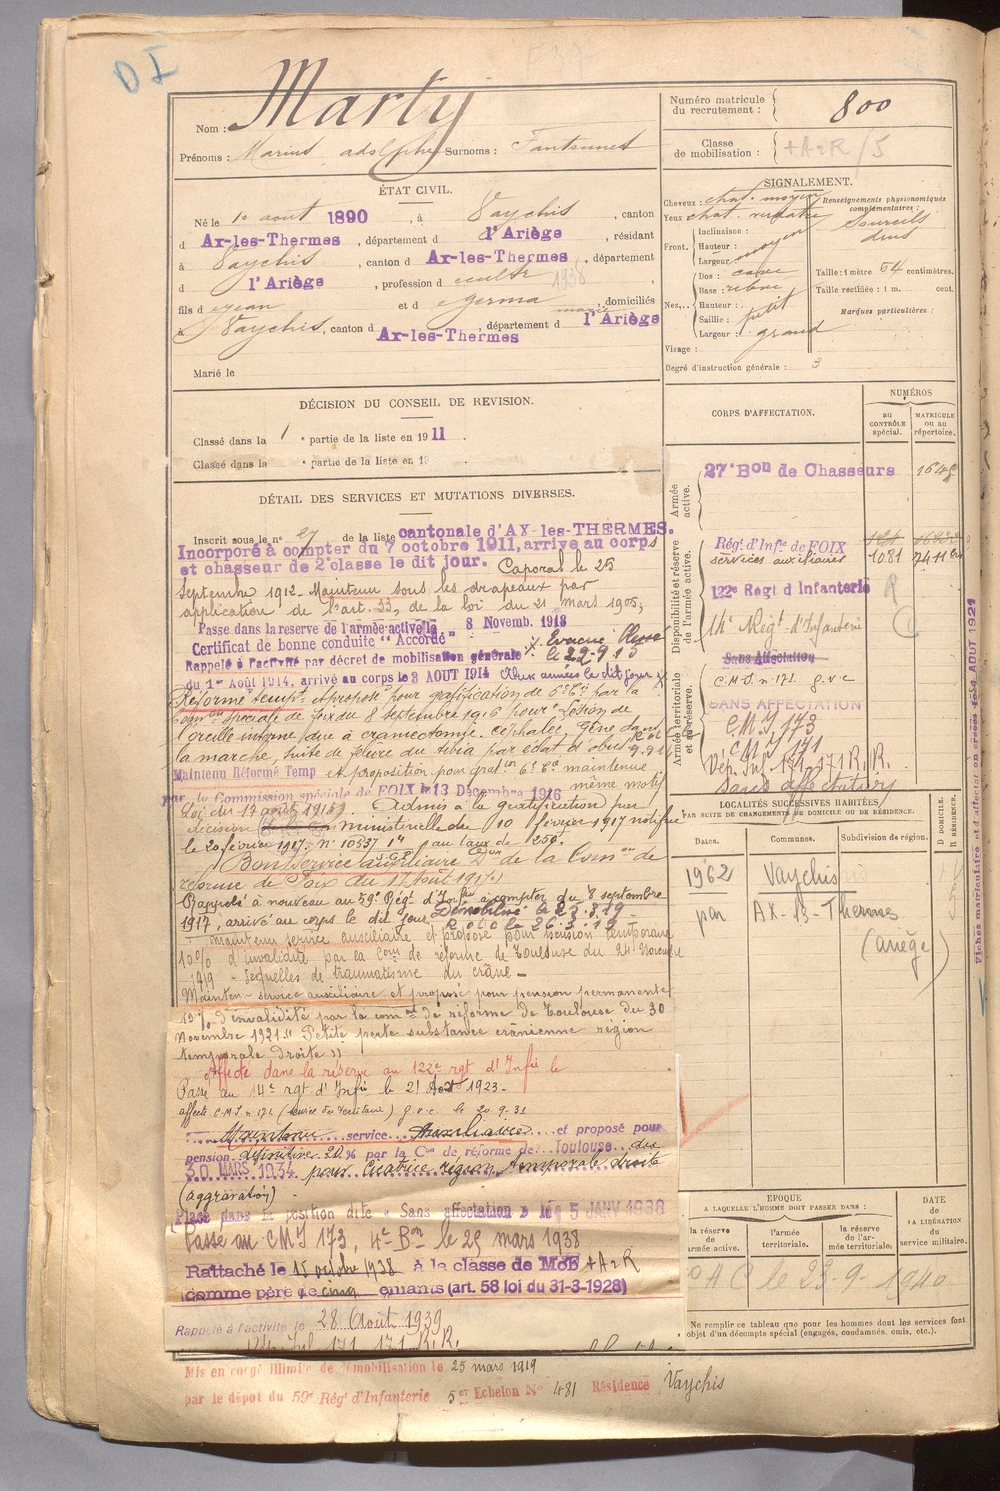 D I
Nom : Marty
Prénoms : Marius adolphe Surnoms :
Numéro matricule du recrutement : 800
Classe de mobilisation :
ÉTAT CIVIL.
Né le 10 aout 1890, à Vaychis, canton
d Ax-les-Thermes, département d l'Ariège, résidant
à Vaychis, canton d Ax-les-Thermes, département
d l'Ariège, profession d cultr
1938
fils d Jean et d Germa, domiciliés
à Vaychis, canton d Ax-les-Thermes, département d l'Ariège
Marié le
SIGNALEMENT.
Cheveux : chat. moyen
Yeux chat. verdatre
Front. Inclinaison :
Hauteur : moyen
Largeur
Nez. Dos : cave
Base : relevé
Hauteur :
Saillie : petit
Largeur : grand
Visage :
Renseignements physionomiques complémentaires :
Sourcils
drus
Taille : 1 mètre 64 centimètres.
Taille rectifiée : 1 m. cent.
Marques particulières :
Degré d'instruction générale : 3
DÉCISION DU CONSEIL DE REVISION.
Classé dans la 1e partie de la liste en 1911.
Classé dans la e partie de la liste en 19 .
DÉTAIL DES SERVICES ET MUTATIONS DIVERSES.
Inscrit sous le n° 27 de la liste cantonale d'AX-les-THERMES.
Incorporé à compter du 7 octobre 1911, arrivé au corps
et chasseur de 2e classe le dit jour. Caporal le 25
Septembre 1912. Maintenu sous les drapeaux par
application de l'art. 33, de la loi du 21 mars 1905,
Passé dans la reserve de l'armée active le 8 Novemb. 1913
Certificat de bonne conduite "Accordé"
Evacué Blessé
le 22-9-15
Rappelé à l'activité par décret de mobilisation générale
du 1er Août 1914, arrivé au corps le 3 AOUT 1914 Aux armées le dit jour
Réformé tempt et proposé pour gratification de 6e Cie par la
Comon Spéciale de Foix du 8 septembre 1916 pour Lésion de
l'oreille interne due à craniectomie. cephalée, Gêne dans
la marche, suite de felure du tibia par eclat d'obus
Maintenu Réformé Temp et proposition pour graton 6e Cie maintenue
par la Commission spéciale de FOIX le 13 Décembre 1916 même motif
Loi du 17 août 1915. Admis à la gratification par
décision ministerielle du 10 février 1917 notifiée
le 20 février 1917. n° 10537 au taux de 250f.
Bon service auxiliaire Don de la Comon de
réforme de Foix du 17 Août 1917.
Rappelé à nouveau au 59e Régt d'Infrie à compter du 8 septembre
1917, arrivé au corps le dit jour Démobilisé le 25.3.19
Maintenu service auxiliaire et proposé pour pension temporaire
10% d'invalidité par la Comon de réforme de Toulouse du 24 Novembre
1919 - Sequelles de traumatisme du crâne -
Mainten- service auxiliaire et proposé pour pension permanente
10% d'invalidité par la comon de réforme de Toulouse du 30
Novembre 1921 "Petite perte substance crânienne région
temporale droite"
Affecté dans la réserve au 122e rgt d'Infie le
Passé au 14e rgt d'Infie le 21 Aout 1923.
affecté C.M.I. n° 171 (Service du Territoire) g.v.c. le 20-9-31
Maintenu service Auxiliaire et proposé pour
pension définitive 20% par la Con de réforme de Toulouse du
30 MARS 1934 pour Cicatrice région temporale droite
(aggravation)
Placé dans la position dite « Sans affectation » le 5 JANV 1938
Passé au CMI 173, 4e Bon le 25 mars 1938
Rattaché le 15 octobre 1938 à la classe de Mob +A2R
comme père de cinq enfants (art. 58 loi du 31-3-1928)
Rappelé à l'activité le 28 Août 1939
171 R.R.
Mis en congé illimité de démobilisation le 25 mars 1919
par le dépôt du 59e Régt d'Infanterie 5e Echelon N° 481 Résidence Vaychis
CORPS D'AFFECTATION.
NUMÉROS
AU CONTRÔLE spécial.
MATRICULE ou au répertoire.
Armée active.
27e Bon de Chasseurs
Disponibilité et réserve de l'armée active.
Régt d'Infie de FOIX
services auxiliaires 1081
122e Régt d'Infanterie
14e Régt d'Infanterie
Armée territoriale et sa réserve.
Sans Affectation
C.M.I. n° 171. g.v.c
SANS AFFECTATION
CMI 173
CMI 171
Dép. Inf. 171 - 171 R.R.
Sans affectation
LOCALITÉS SUCCESSIVES HABITÉES
PAR SUITE DE CHANGEMENTS DE DOMICILE OU DE RÉSIDENCE.
Dates. Communes. Subdivision de région. D DOMICILE. R RÉSIDENCE.
1962 Vaychis
par AX-les-Thermes
(Ariège)
EPOQUE
A LAQUELLE L'HOMME DOIT PASSER DANS :
la réserve de l'armée active.
l'armée territoriale.
la réserve de l'armée territoriale.
DATE de LA LIBÉRATION du service militaire.
le 23-9-1940
Ne remplir ce tableau que pour les hommes dont les services font
objet d'un décompte spécial (engagés, condamnés, omis, etc.).